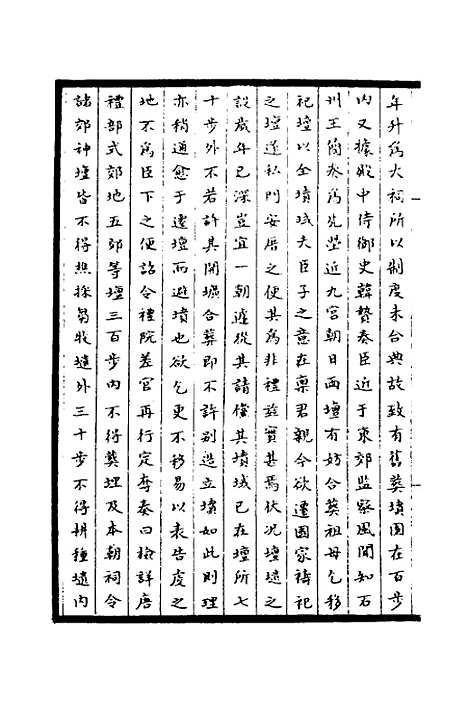 年升為大祠所以制度未合典故致有舊葬墳園在百步
内又據殿中侍御史韓贄奏臣近于東郊監祭風聞知石
州王簡奏為先塋近九宫朝日兩壇有妨合葬祖母乞移
祀壇以全墳域夫臣子之意在稟君親今欲遷國家禱祀
之壇遂私門安厝之便其為非禮兹實甚焉伏况壇壝之
設歲年已深豈宜一朝遽從其請儻其墳域已在壇所七
十步外不若許其開壙合葬即不許别造立墳如此則理
亦稍通愈于遷壇而避墳也欲乞更不移易以表告虔之
地不為臣下之便詔令禮院差官再行定奪奏曰檢詳唐
禮部式郊地五郊等壇三百步内不得葬埋及本朝祠令
諸郊神壇皆不得樵採芻牧壝外三十步不得耕種壝内